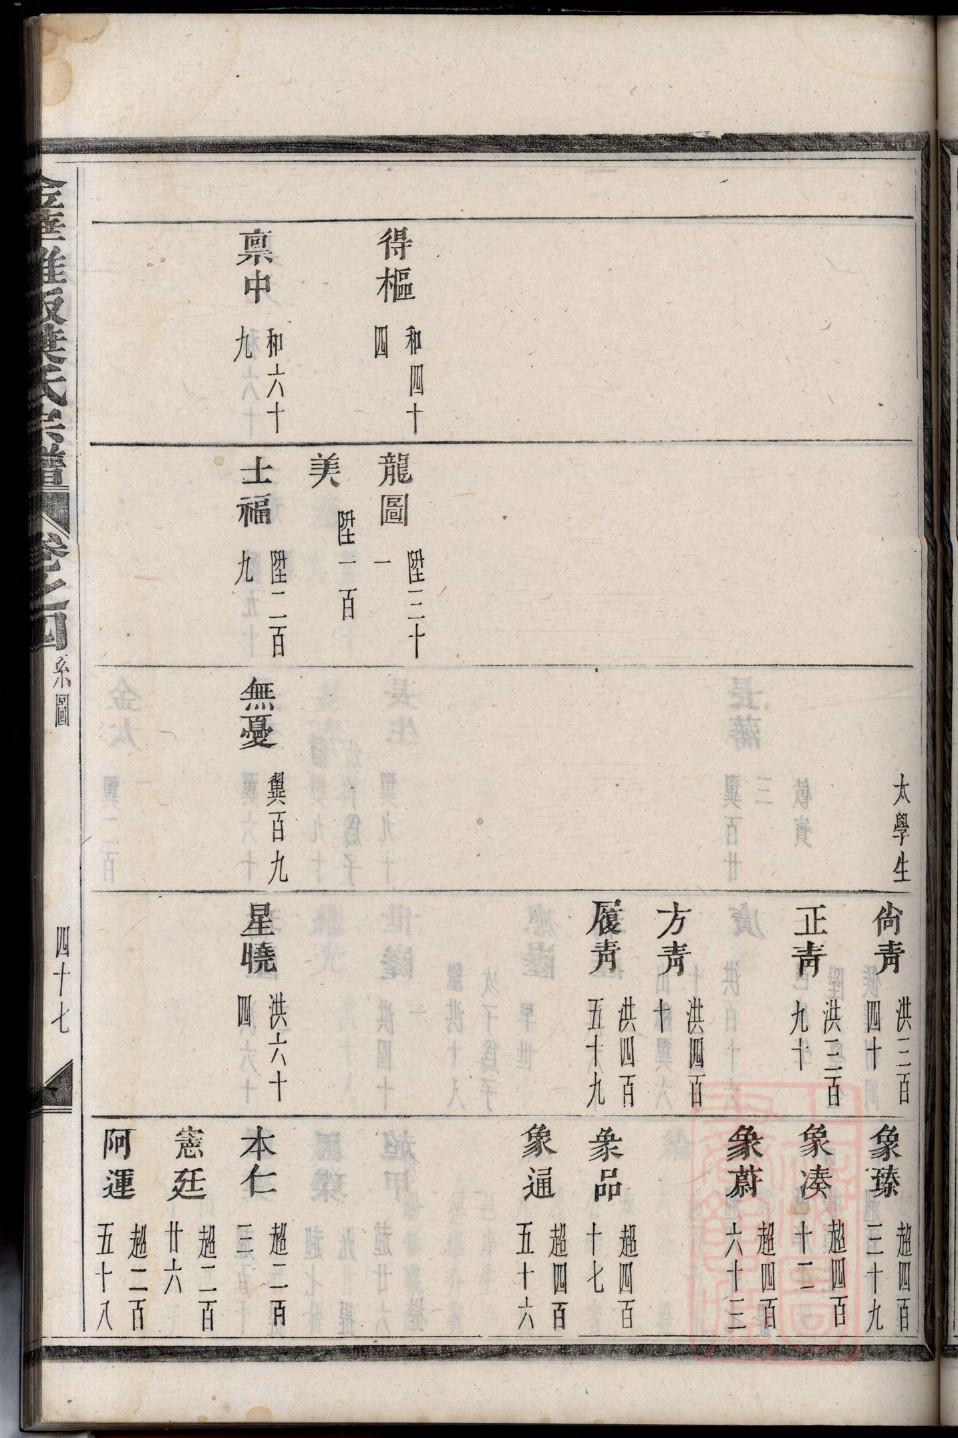 得樞
和四十
四
禀中
和六十
九
龍圖
陞三十
一
美
陞一百
士福
陞二百
九
太學生
無憂
巽百九
尙靑
洪三百
四十
正靑
洪三百
九十
方靑
洪四百
十
履靑
洪四百
五十九
星曉
洪六十
四
象臻
超四百
三十九
象湊
超四百
十二
象蔚
超四百
六十三
象品
超四百
十七
象通
超四百
五十六
本仁
超二百
三
憲廷
超二百
廿六
阿運
超二百
五十八
葉氏宗譜
卷之四
系圖
四十七